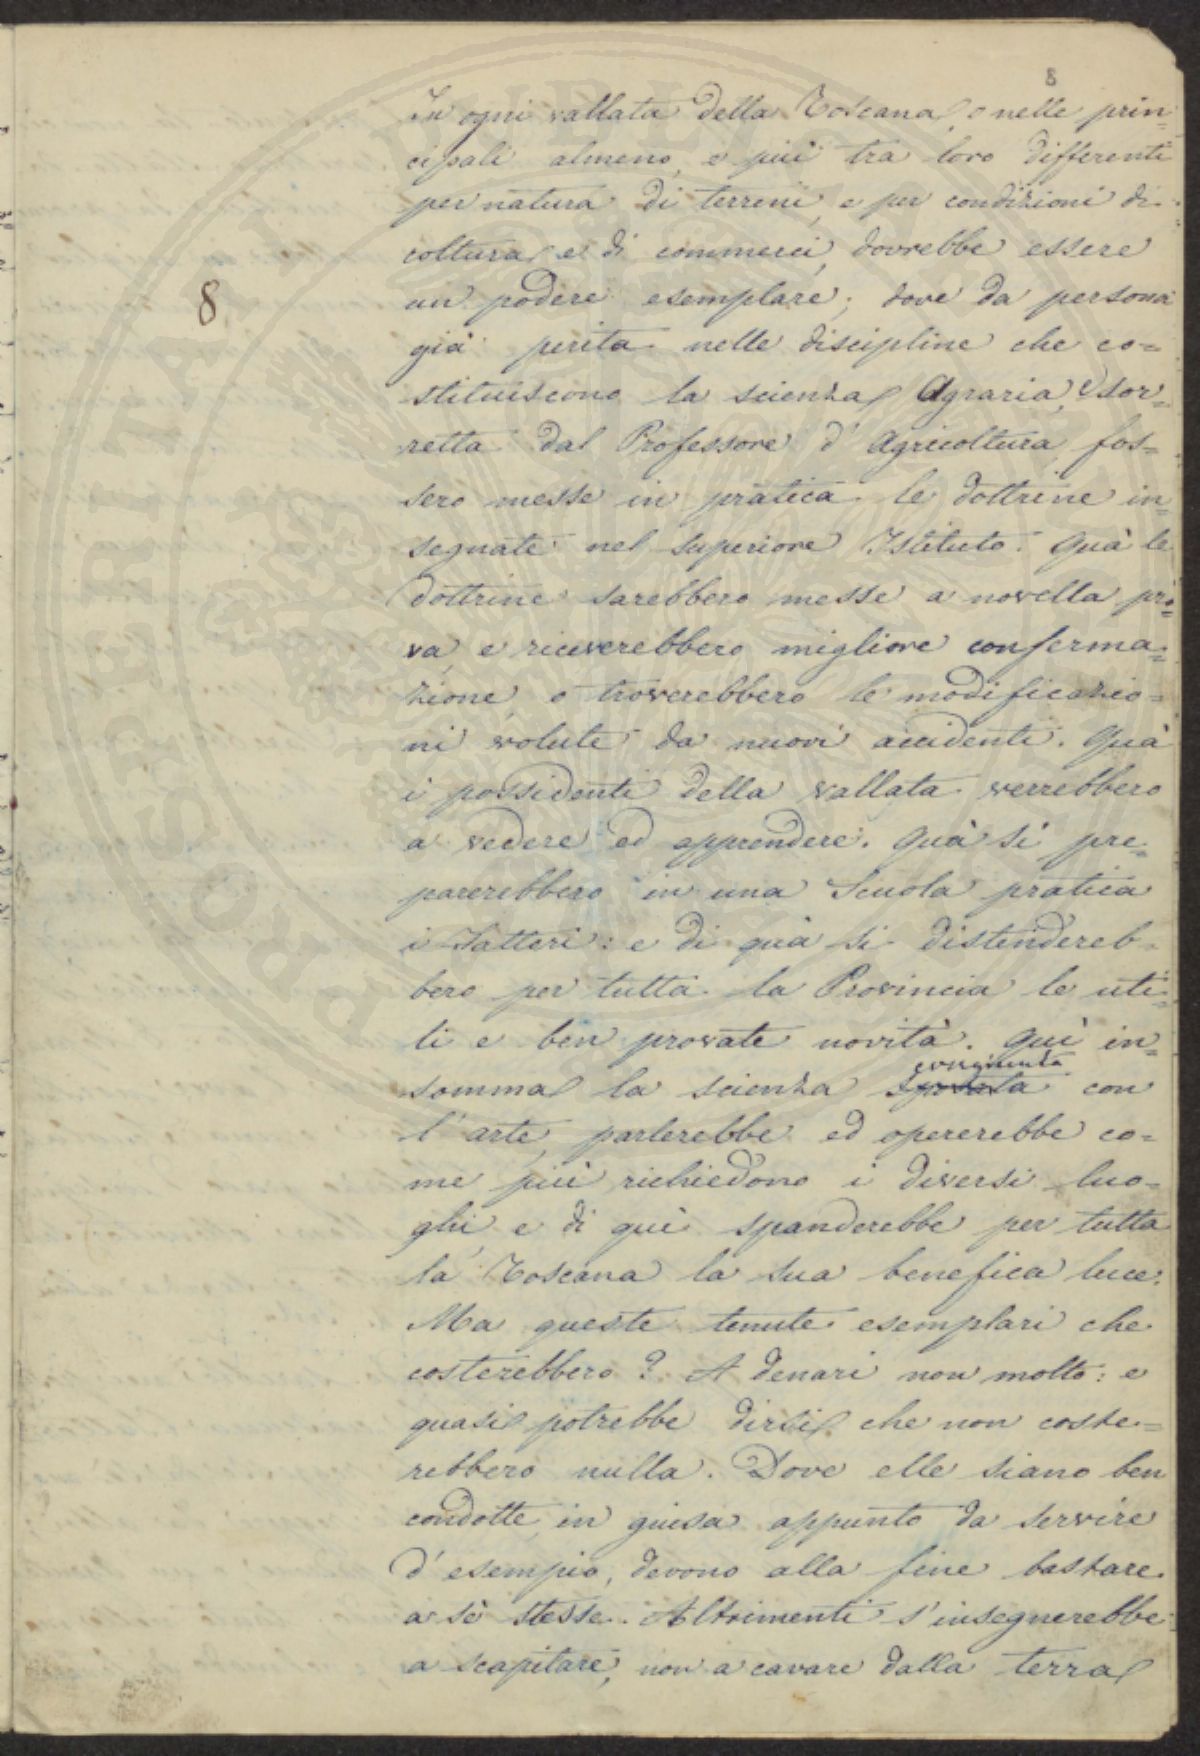 8
In ogni vallata della Toscana, o nelle prin-
cipali almeno, e più tra loro differenti
per natura di terreni, e per condizioni di
coltura, e di commerci, dovrebbe essere
un podere esemplare; dove da persona
8
già perita nelle discipline che co=
stituiscono la scienza Agraria, e sor=
retta dal Professore d'Agricoltura, fos=
sero messe in pratica le dottrine in=
segnate nel superiore Istituto. Quà le
dottrine sarebbero messe a novella pro=
va, e riceverebbero migliore conferma=
zione, o troverebbero le modificazio=
ni volute da nuovi accidenti. Quà
i possidenti della vallata verrebbero
a vedere ed apprendere. Quà si pre=
parerebbero in una Scuola pratica
i Fattori: e di quà si distendereb=
bero per tutta la Provincia le uti=
li e ben provate novità. Quì in=
congiunta
somma la scienza sposata con
l'arte, parlerebbe ed opererebbe co=
me più richiedono i diversi luo=
ghi, e di quì spanderebbe per tutta
la Toscana la sua benefica luce.
Ma queste tenute esemplari che
costerebbero? A denari non molto: e
quasi potrebbe dirsi che non coste=
rebbero nulla. Dove elle siano ben
condotte, in guisa appunto da servire
d'esempio, devono alla fine bastare
a sè stesse. Altrimenti s'insegnerebbe
a scapitare, non a cavare dalla terra
PROSPERITATI